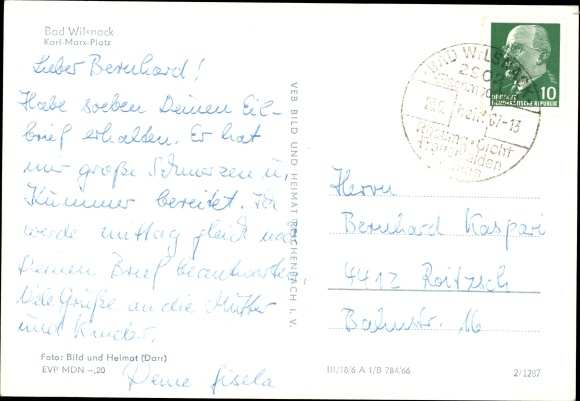 Bad Wilsnack
Karl-Marx-Platz
Lieber Bernhard!
Habe soeben Deinen Eil-
brief erhalten. Er hat
mir große Schmerzen u.
Kummer bereitet. Ich
werde mittag gleich noch
Deinen Brief beantworten
Viele Grüße an die Mutter
und Kinder.
Deine Gisela
Foto: Bild und Heimat (Darr)
EVP MDN –,20
VEB BILD UND HEIMAT REICHENBACH I. V.
BAD WILSNACK
2902
67-13
Rheuma • Gicht
Frauenleiden
DEUTSCHE
DEMOKRATISCHE REPUBLIK
10
Herrn
Bernhard Kaspari
4412 Roitzsch
Bahnstr. 16
III/18/6 A 1/B 784/66
2/1287